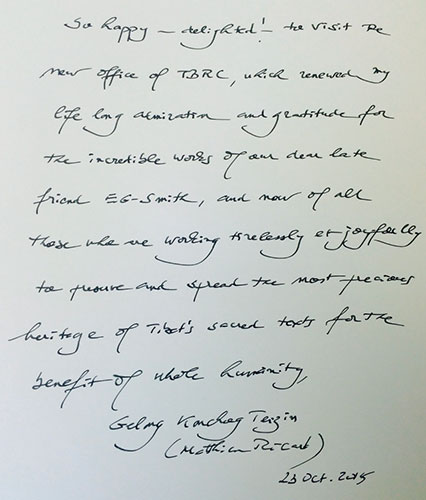 So happy – delighted! – to visit the
new office of TBRC, which renewed my
life long admiration and gratitude for
the incredible works of our dear late
friend EG-Smith, and now of all
those who are working tirelessly et joyfully
to preserve and spread the most precious
heritage of Tibet's sacred texts for the
benefit of whole humanity,
Gelong Konchog Tenzin
(Matthieu Ricard)
23 Oct. 2015